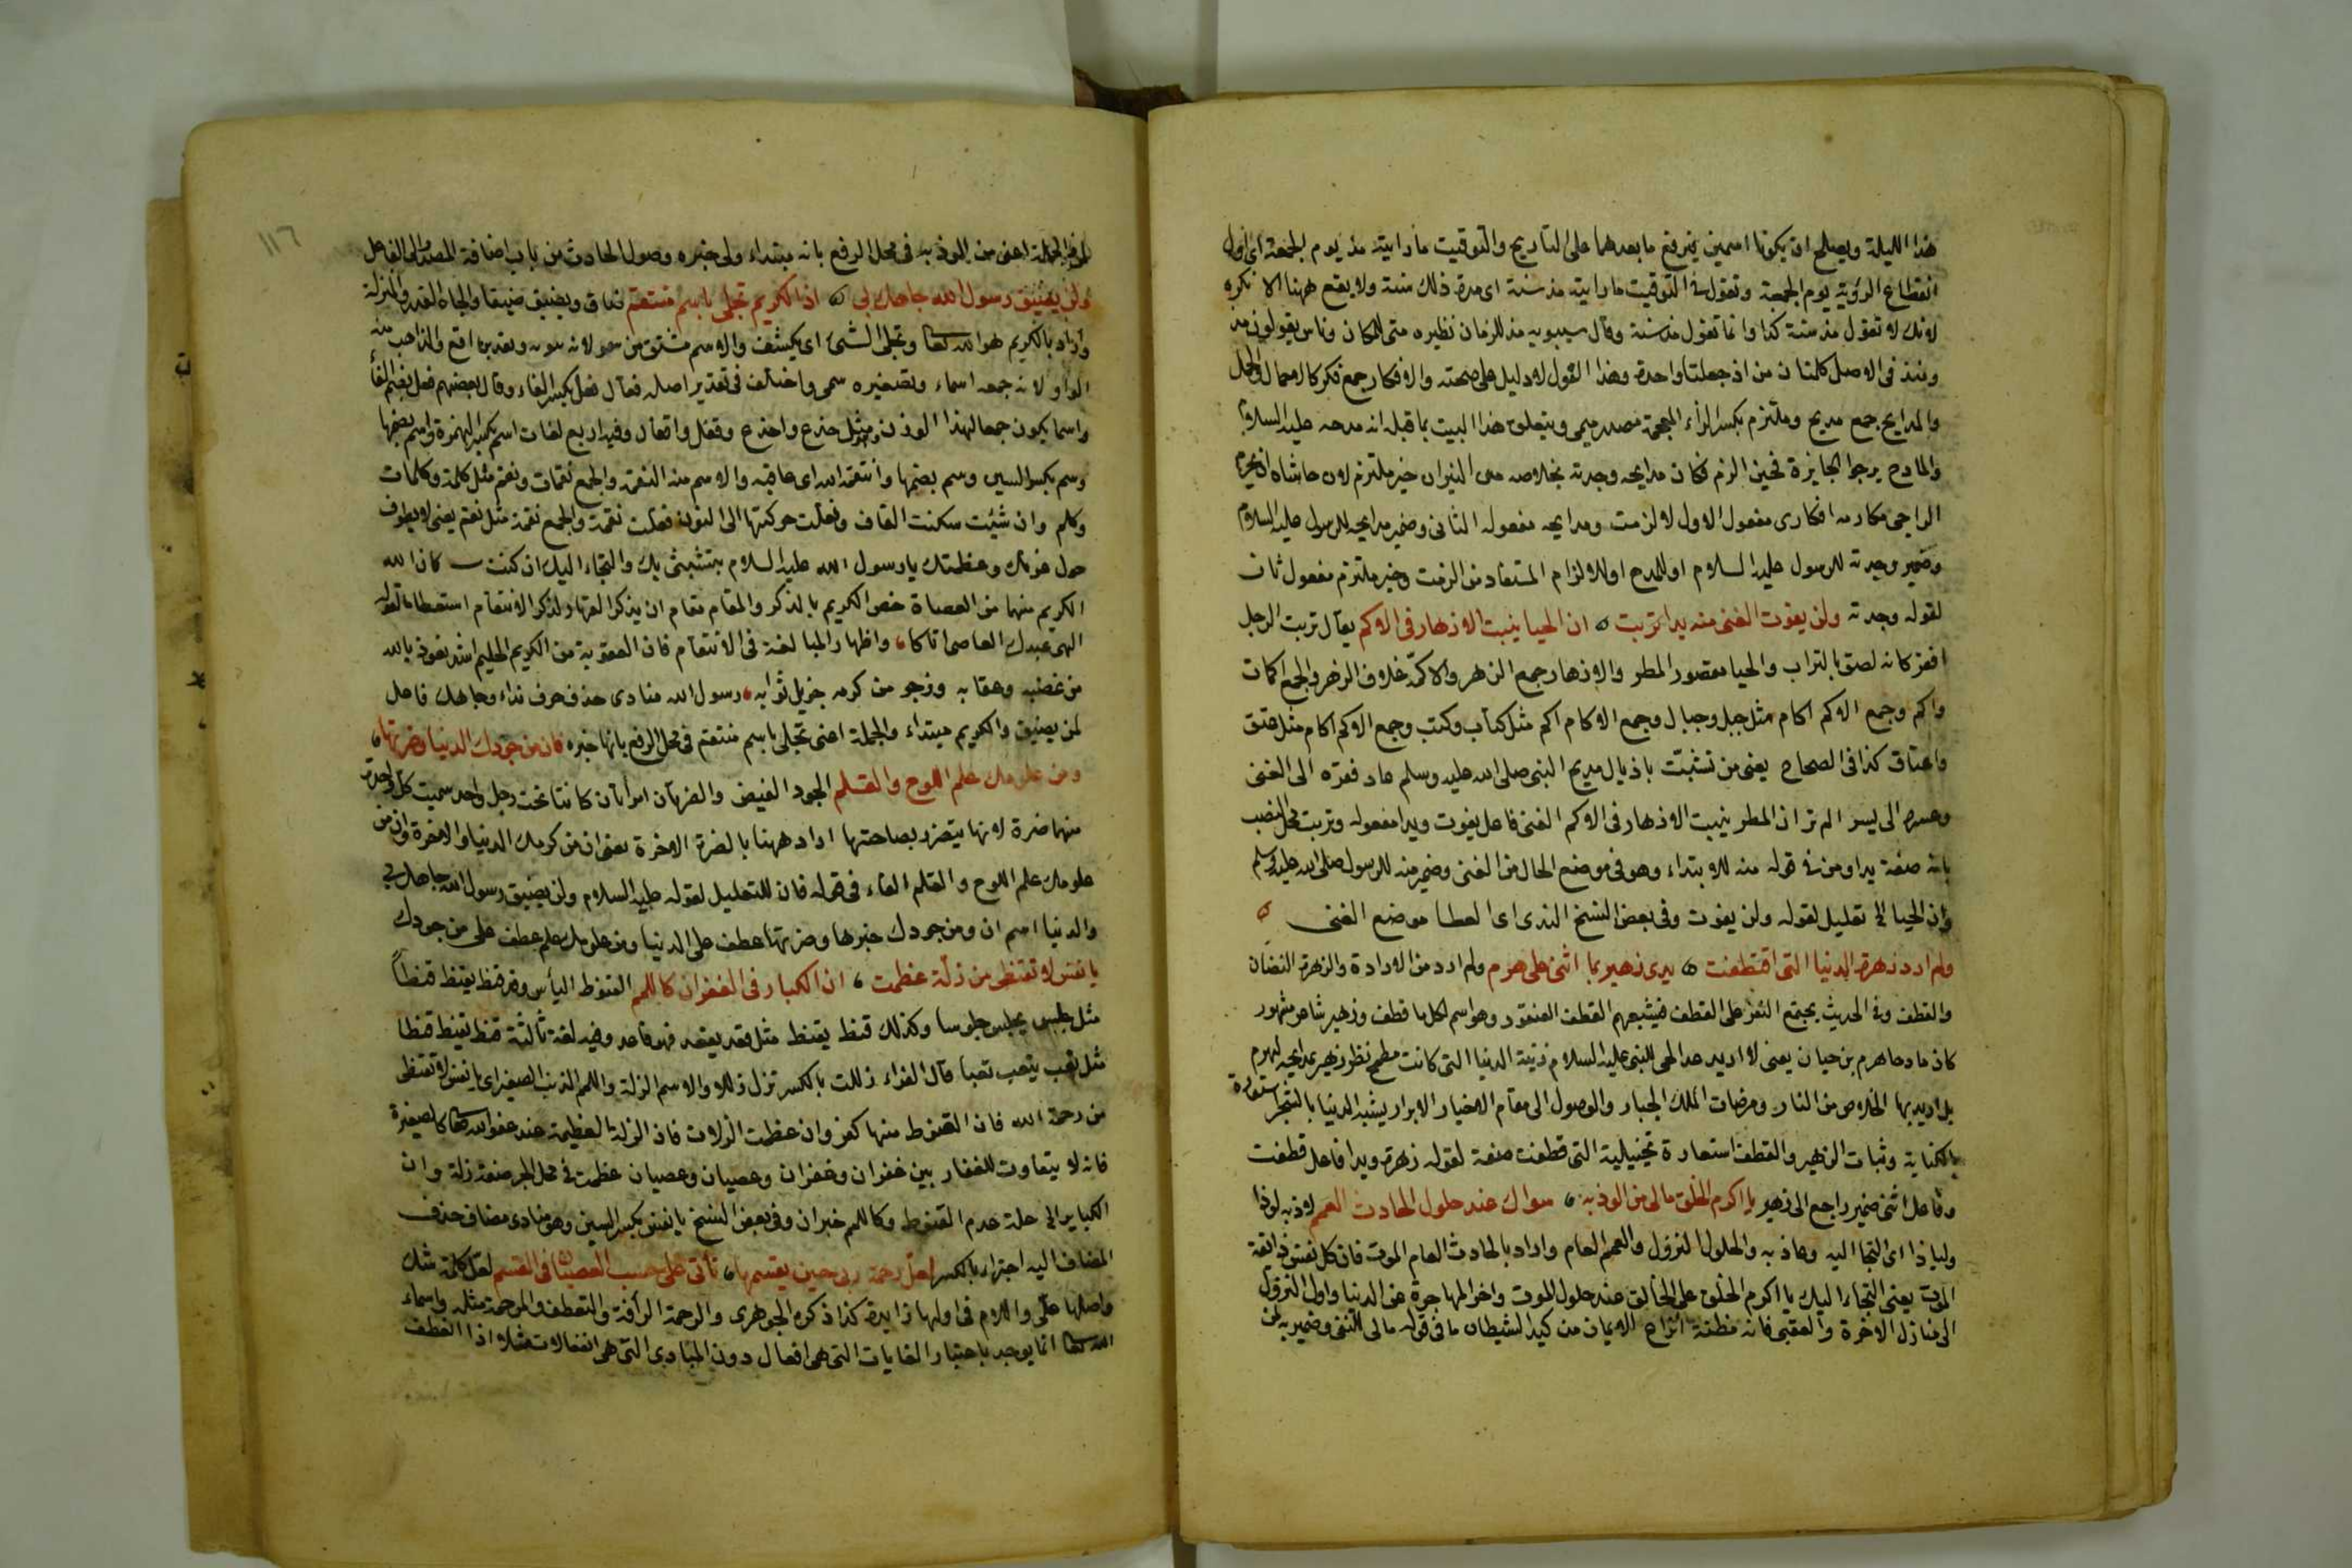 هذا الليلة ويصلح ان يكونا اسمين يرفع ما بعدهما على التاريخ والتوقيت ما رايته مذ يوم الجمعة اى اول
انقطاع الرؤية يوم الجمعة وتقول فى التوقيت ما رايته مذ سنة اى مدة ذلك سنة ولا يقع ههنا الا نكرة
لانك لا تقول مذ سنة كذا وانما تقول مذ سنة وقال سيبويه مذ للزمان نظيره من للمكان وناس يقولون ان مذ
ومنذ فى الاصل كلمتان من اذ جعلتا واحدة وهذا القول لا دليل على صحته والافكار جمع فكر كالاحمال والحمل
والمدايح جمع مديح وملتزم بكسر الزاء المعجمة مصدر ميمى ويتعلق هذا البيت بما قبله انه مدحه عليه السلام
والمادح يرجو الجايزة فحين الزم فكان مدايحه وجدته بخلاصه من النيران خير ملتزم لان حاشاه ان يحرم
الراجى مكارمه افكارى مفعول الاول لالزمت ومدايحه مفعوله الثانى وضمير مدايحه للرسول عليه السلام
وضمير وجدته للرسول عليه السلام او للمدح او للالزام المستفاد من الزمت وخير ملتزم مفعول ثان
لقوله وجدته ولن يفوت الغنى منه يدا تربت ان الحيا ينبت الازهار فى الاكم يقال تربت الرجل
افقر كانه لصق بالتراب والحيا مقصور المطر والازهار جمع الزهر والاكمة غلاف الزهر والجمع اكمات
واكم وجمع الاكم اكام مثل جبل وجبال وجمع الاكام اكم مثل كتاب وكتب وجمع الاكم اكام مثل عنق
واعناق كذا فى الصحاح يعنى من تشبثت باذيال مديح النبى صلى الله عليه وسلم عاد فقره الى الغنى
وعسره الى يسر الم تر ان المطر ينبت الازهار فى الاكم الغنى فاعل يفوت ويدا مفعوله وتربت محل النصب
بانه صفة يدا ومن فى قوله منه للابتداء وهو فى موضع الحال من الغنى وضمير منه للرسول صلى الله عليه وسلم
وان الحيا الخ تعليل لقوله ولن يفوت وفى بعض النسخ الندى اى العطا موضع الغنى
ولم ارد زهرة الدنيا التى اقتطفت يدى زهير بما اثنى على هرم ولم ارد من الارادة والزهرة النضارة
والقطف وفى الحديث يجتمع النفر على القطف فيشبعهم القطف العنقود وهو اسم لكل ما قطف وزهير شاعر مشهور
كان مادحا هرم بن حيان يعنى لا اريد مدايحى للنبى عليه السلام زينة الدنيا التى كانت مطمح نظر زهير بمدايحه لهرم
بل اريد بها الخلاص من النار ومرضات الملك الجبار والوصول الى مقام الاخيار الابرار يشبه الدنيا بالشجر استعارة
بالكناية وثبات الزهير والقطف استعارة تخييلية التى قطفت صفة لقوله زهرة ويدا فاعل قطفت
وفاعل اثنى ضمير راجع الى زهير يا اكرم الخلق مالى من الوذ به سواك عند حلول الحادث العمم لاذ به لوذا
ولياذا اى التجا اليه وعاذ به والحلول النزول والعمم العام واراد بالحادث العام الموت فان كل نفس ذائقة
الموت يعنى التجاء اليك يا اكرم الخلق على الخالق عند حلول الموت واخر المهاجرة عن الدنيا واول النزول
الى منازل الاخرة والعقبى فانه مظنة انتزاع الايمان من كيد الشيطان ما فى قوله مالى للنفى وضمير به لمن
١١٦
لمن والجملة اعنى من الوذ به فى محل الرفع بانه مبتداء ولى خبره وحلول الحادث من باب اضافة المصدر الى الفاعل
ولن يضيق رسول الله جاهك بى اذا الكريم تجلى باسم منتقم ضاق ويضيق ضيقا والجاه القدر والمنزلة
واراد بالكريم هو الله تعالى وتجلى الشئ اى يكشف والاسم مشتق من سموت لانه تنويه وتقديره افع والذاهب منه
الواو لانه جمعه اسماء وتصغيره سمى واختلف فى تقدير اصله فقال فعل بكسر الفاء وقال بعضهم فعل بضم الفاء
واسما يكون جمعا لهذا الوزن مثل جذع واجذاع وقفل واقفال وفيه اربع لغات اسم بكسر الهمزة واسم بضمها
وسم بكسر السين وسم بضمها وانتقم الله اى عاقبه والاسم منه النقمة والجمع نقمات ونقم مثل كلمة وكلمات
وكلم وان شئت سكنت القاف ونقلت حركتها الى النون فقلت نقمة والجمع نقم مثل نعم يعنى لا يطوف
حول عزتك وعظمتك يا رسول الله عليه السلام بتشبثى بك والتجاء اليك ان كنت كان الله
الكريم منهما من العصاة خص الكريم بالذكر والمقام مقام ان يذكر القهار لذكر الانتقام استعطافا كقوله
الهى عبدك العاصى اتاكا واظهار المبالغة فى الانتقام فان العقوبة من الكريم الحليم اشد نعوذ بالله
من غضبه وعقابه ونرجو من كرمه جزيل ثوابه رسول الله منادى حذف حرف نداء وجاهك فاعل
لن يضيق والكريم مبتداء والجملة اعنى تجلى باسم منتقم فى محل الرفع بانها خبره فان من جودك الدنيا وضرتها
ومن علومك علم اللوح والقلم الجود الفيض والضرتان امرأتان كانتا تحت رجل واحد سميت كل واحدة
منهما ضرة لانها يتضرر بصاحبتها اراد ههنا بالضرة الاخرة يعنى ان من كرمك الدنيا والاخرة وان من
علومك علم اللوح والقلم الفاء فى قوله فان للتعليل لقوله عليه السلام ولن يضيق رسول الله جاهك بى
والدنيا اسم ان ومن جودك خبرها وضرتها عطف على الدنيا ومن علومك علم عطف على من جودك
يا نفس لا تقنطى من زلة عظمت ان الكبائر فى الغفران كاللمم القنوط اليأس وقد قنط يقنط قنطاً
مثل جلس يجلس جلوسا وكذلك قنط يقنط مثل قعد يقعد فهو قاعد وفيه لغة ثالثة قنط يقنط قنطا
مثل تعب يتعب تعبا قال الفراء زللت بالكسر تزل زللا والاسم الزلة واللمم الذنب الصغير اى يا نفس لا تقنطى
من رحمة الله فان القنوط منها كفر وان عظمت الزلات فان الزلة العظيمة عند عفو الله تعالى كالصغيرة
فانه لا يتفاوت للغفار بين غفران وغفران وعصيان وعصيان عظمت فى محل الجر صفة زلة وان
الكباير الخ علة عدم القنوط وكاللمم خبر ان وفى بعض النسخ يا نفس بكسر السين وهو منادى مضاف حذف
المضاف اليه اجتزاء بالكسر لعل رحمة ربى حين يقسمها تأتى على حسب العصيان فى القسم لعل كلمة شك
واصلها عل واللام فى اولها زايدة كذا ذكره الجوهرى والرحمة الرأفة والتعطف والمرحمة مثله واسماء
الله تعالى انما يوجد باعتبار الغايات التى هى افعال دون المبادى التى هى انفعالات مثلا اذا العطف